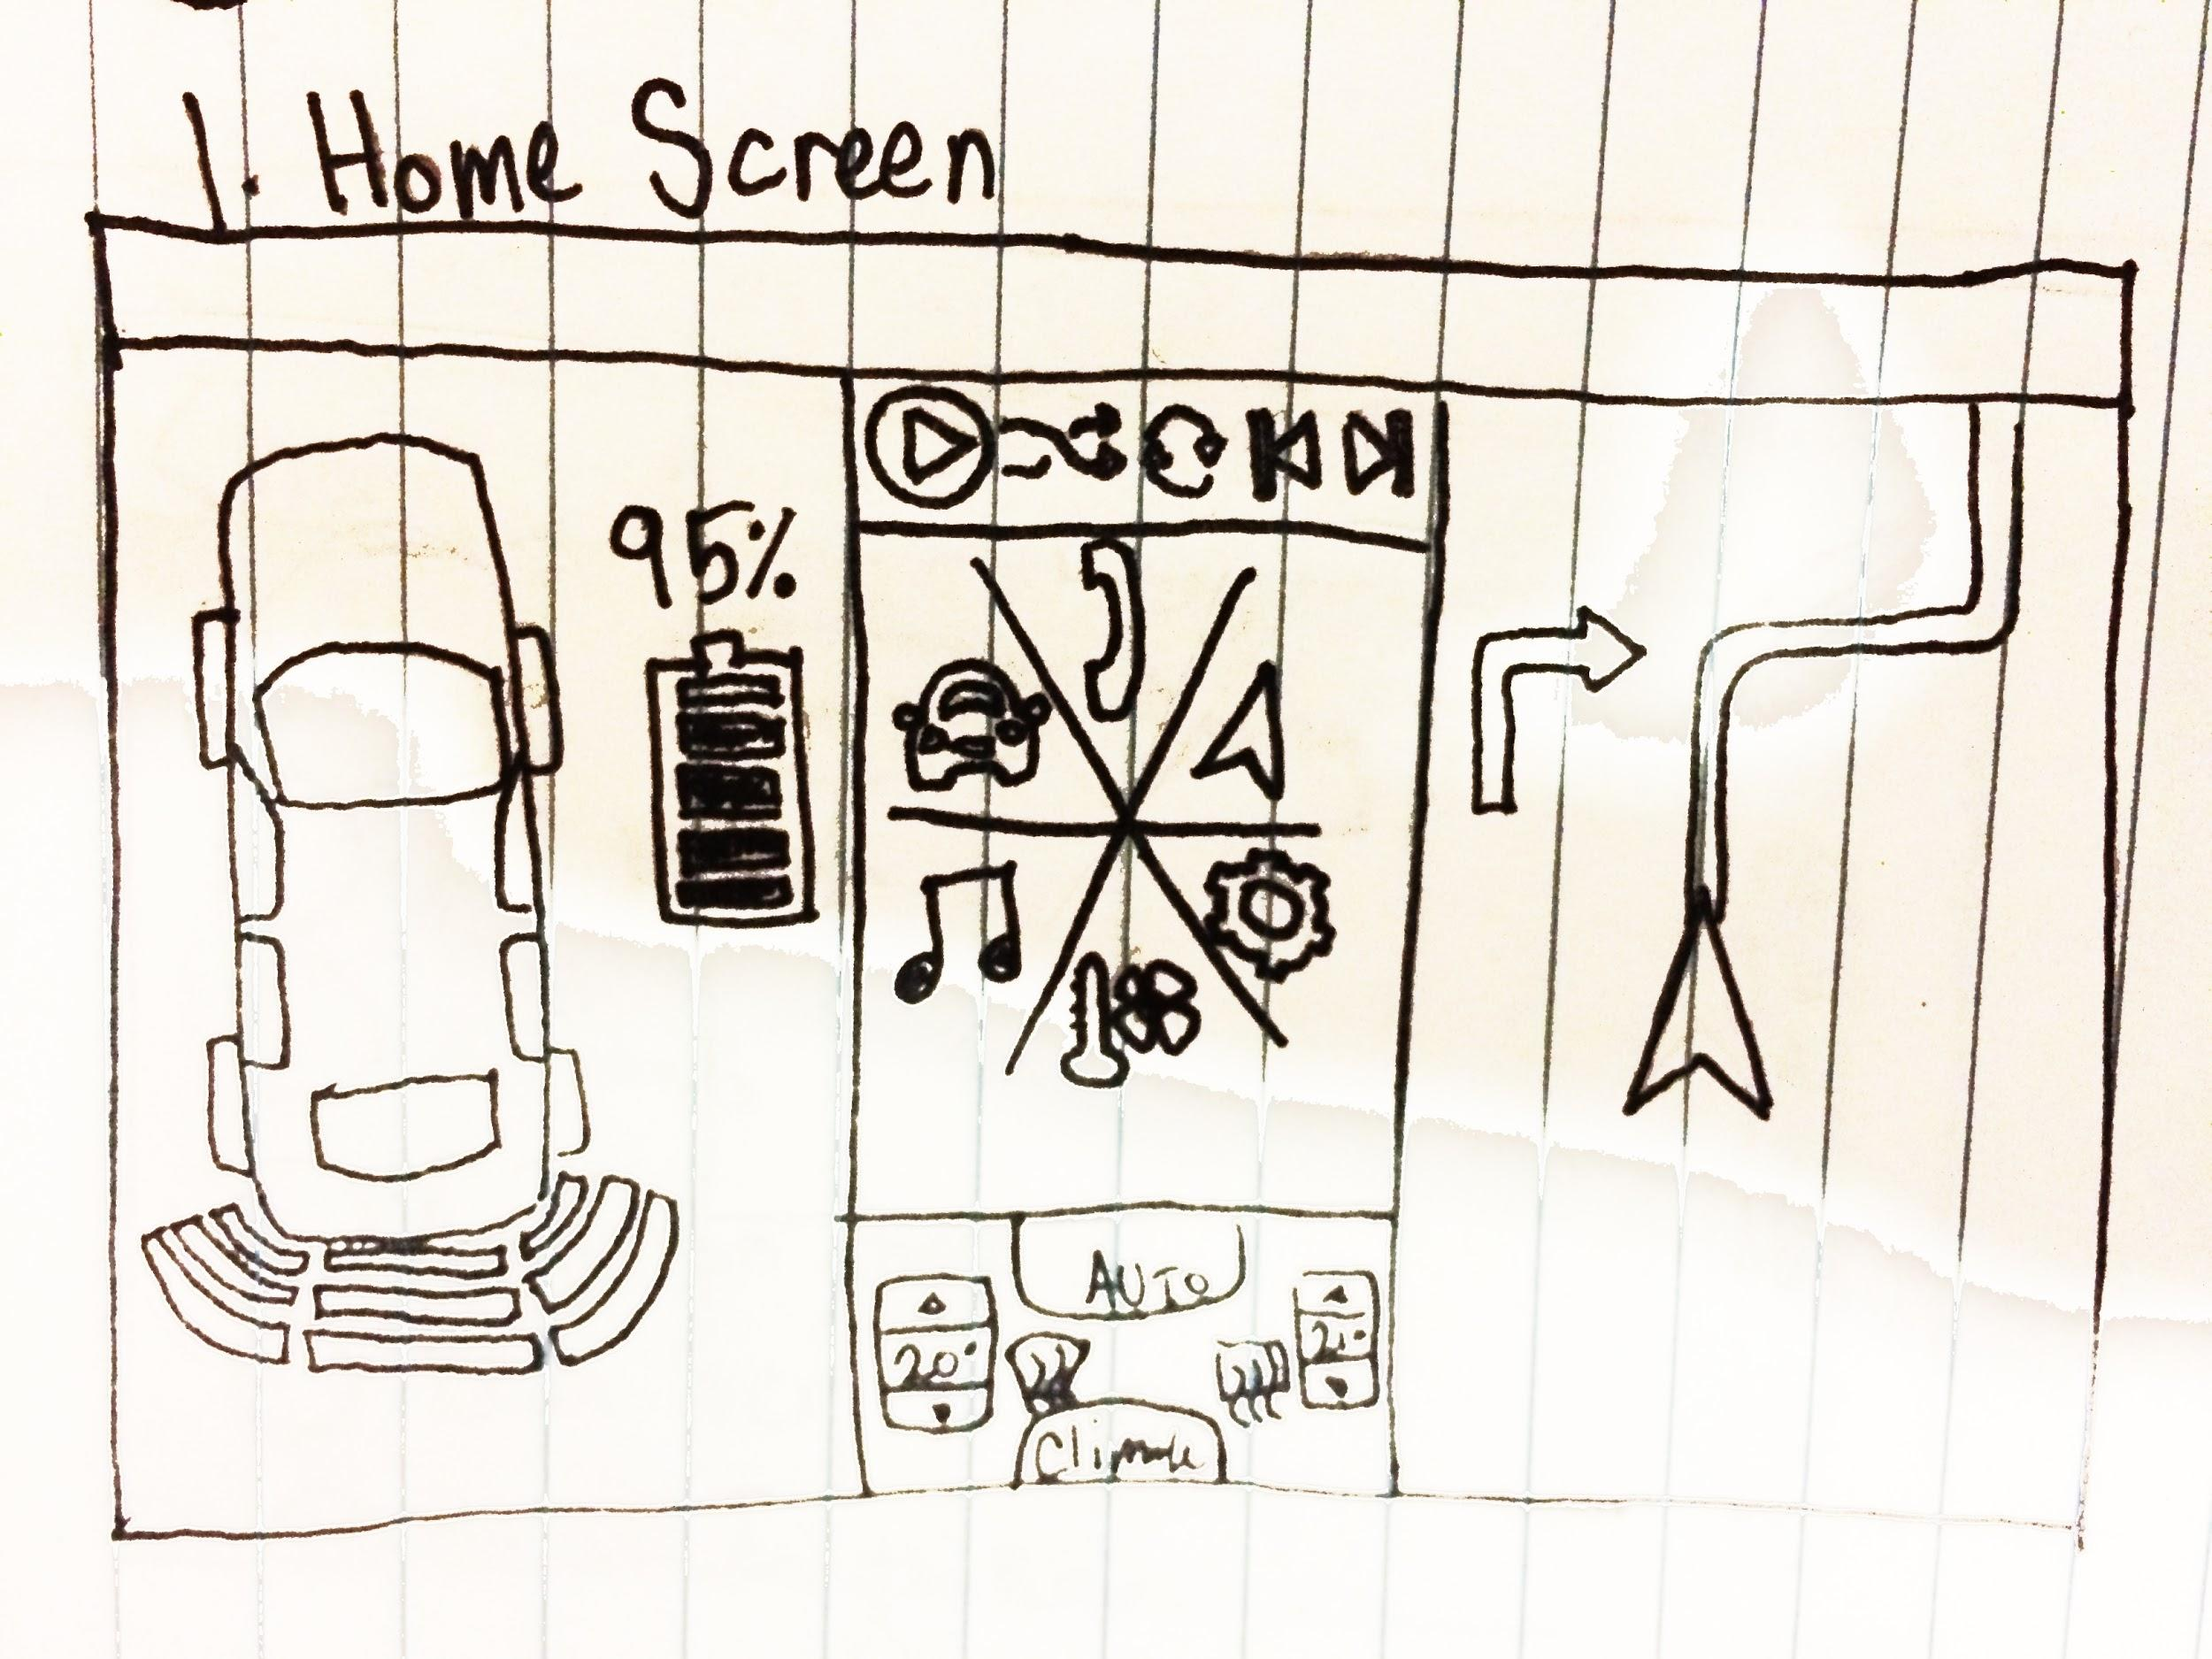 1. Home Screen
95%
AUTO
20°
21°
Climate